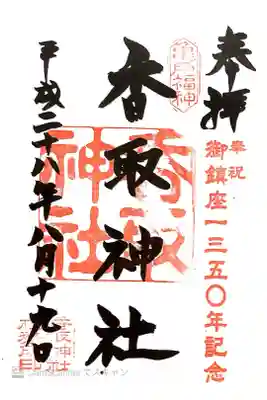 奉拝
奉祝
御鎮座一三五〇年記念
亀戸福神
香取神社
香取神社
平成二十八年八月十九日